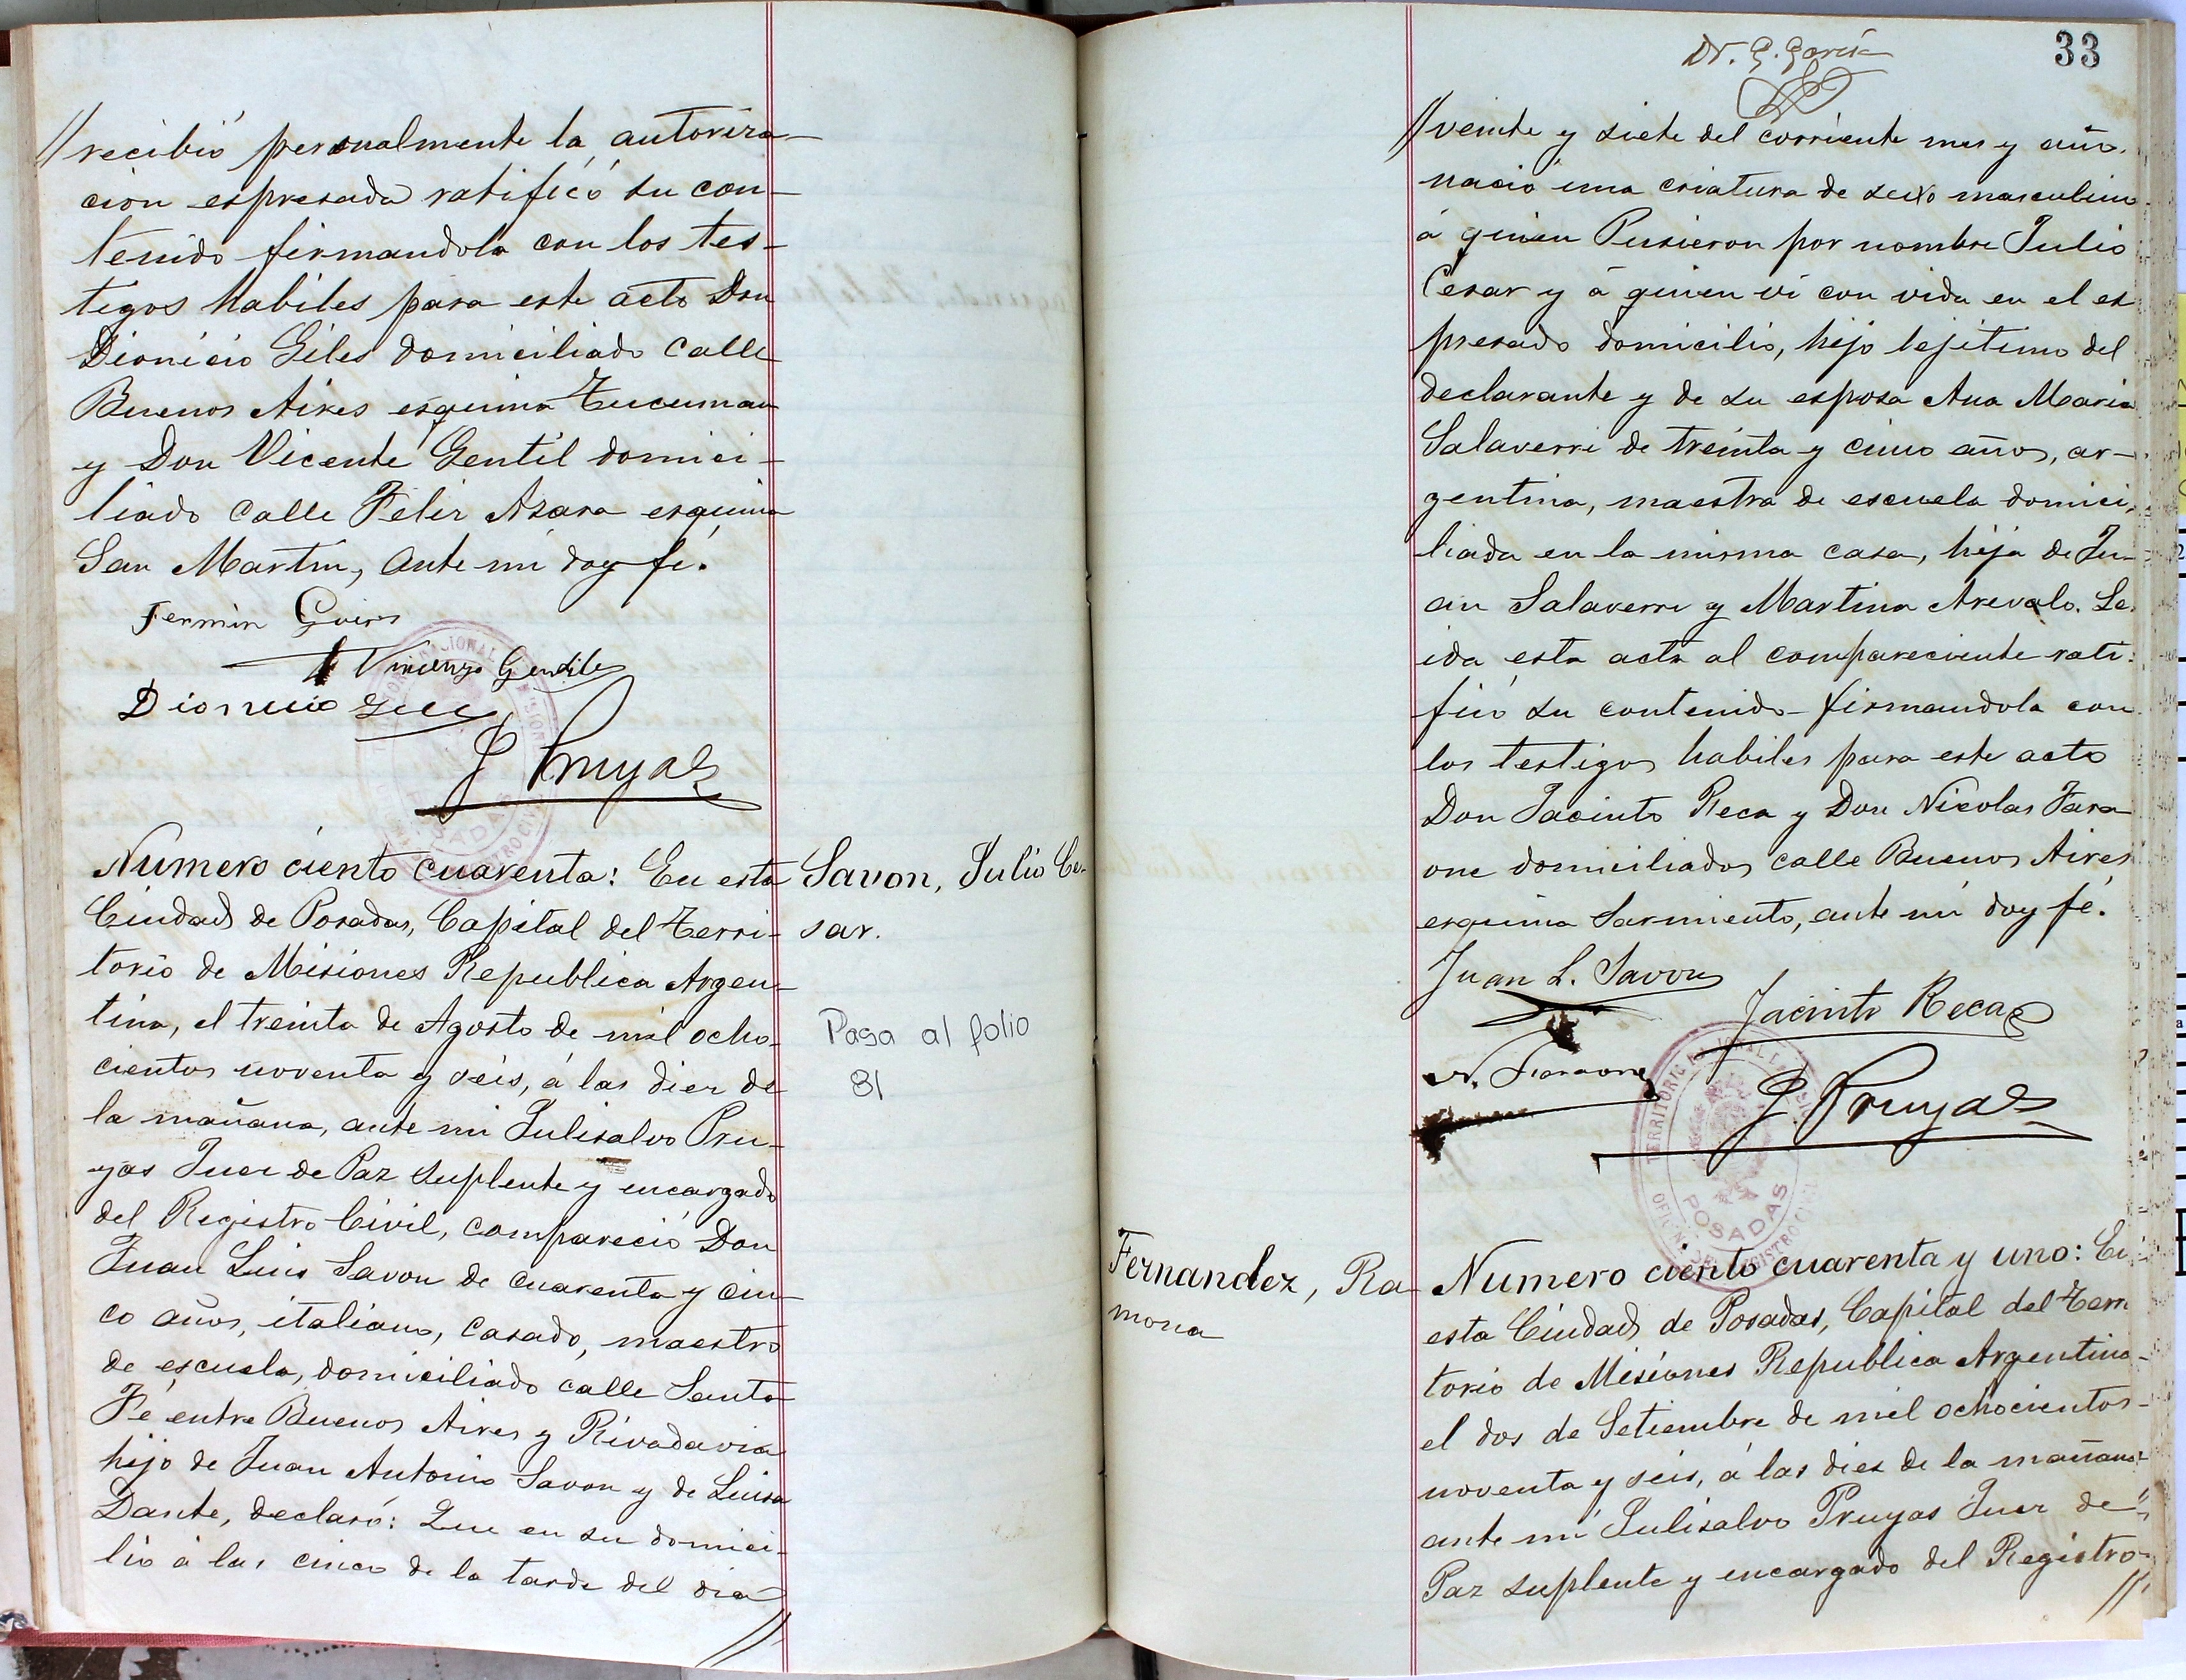 //recibió personalmente la autoriza-
cion espresada ratificó su con-
tenido firmandola con los tes-
tigos habiles para este acto Don
Dionicio Giles domiciliado calle
Buenos Aires esquina Tucuman
y Don Vicente Gentil domici-
liado calle Felix Azara esquina
San Martin, ante mi doy fé.
Fermin
Vincenzo Gentile
Dionicio
J Pruyas
Numero ciento cuarenta: En esta
Ciudad de Posadas, Capital del Terri-
torio de Misiones Republica Argen-
tina, el treinta de Agosto de mil ocho-
cientos noventa y seis, á las diez de
la mañana, ante mi Julisalvo Pru-
yas Juez de Paz suplente y encargado
del Registro Civil, compareció Don
Juan Luis Savon de cuarenta y cin-
co años, italiano, casado, maestro
de escuela, domiciliado calle Santa
Fé entre Buenos Aires y Rivadavia
hijo de Juan Antonio Savon y de Luisa
Dante, declaró: Que en su domici-
lio á las cinco de la tarde del dia
//
Savon, Julio Ce-
sar.
Pasa al folio
81
Dr. G. García
33
//veinte y siete del corriente mes y año.
nació una criatura de sexo masculino
á quien Pusieron por nombre Julio
Cesar y á quien vi con vida en el es
presado domicilio, hijo lejitimo del
declarante y de su esposa Ana Maria
Salaverri de treinta y cinco años, ar-
gentina, maestra de escuela domici-
liada en la misma casa, hija de Ju-
an Salaverri y Martina Arevalo. Le-
ida esta acta al compareciente rati-
ficó su contenido firmandola con
los testigos habiles para este acto
Don Jacinto Reca y Don Nicolas Fara
one domiciliados calle Buenos Aires
esquina Sarmiento, ante mi doy fé.
Juan L. Savon
Jacinto Reca
N. Faraone
J Pruyas
POSADAS
Fernandez, Ra-
mona
Numero ciento cuarenta y uno: En
esta Ciudad de Posadas, Capital del Terri
torio de Misiones Republica Argentina-
el dos de Setiembre de mil ochocientos-
noventa y seis, á las diez de la mañana
ante mi Julisalvo Pruyas Juez de
Paz suplente y encargado del Registro
//